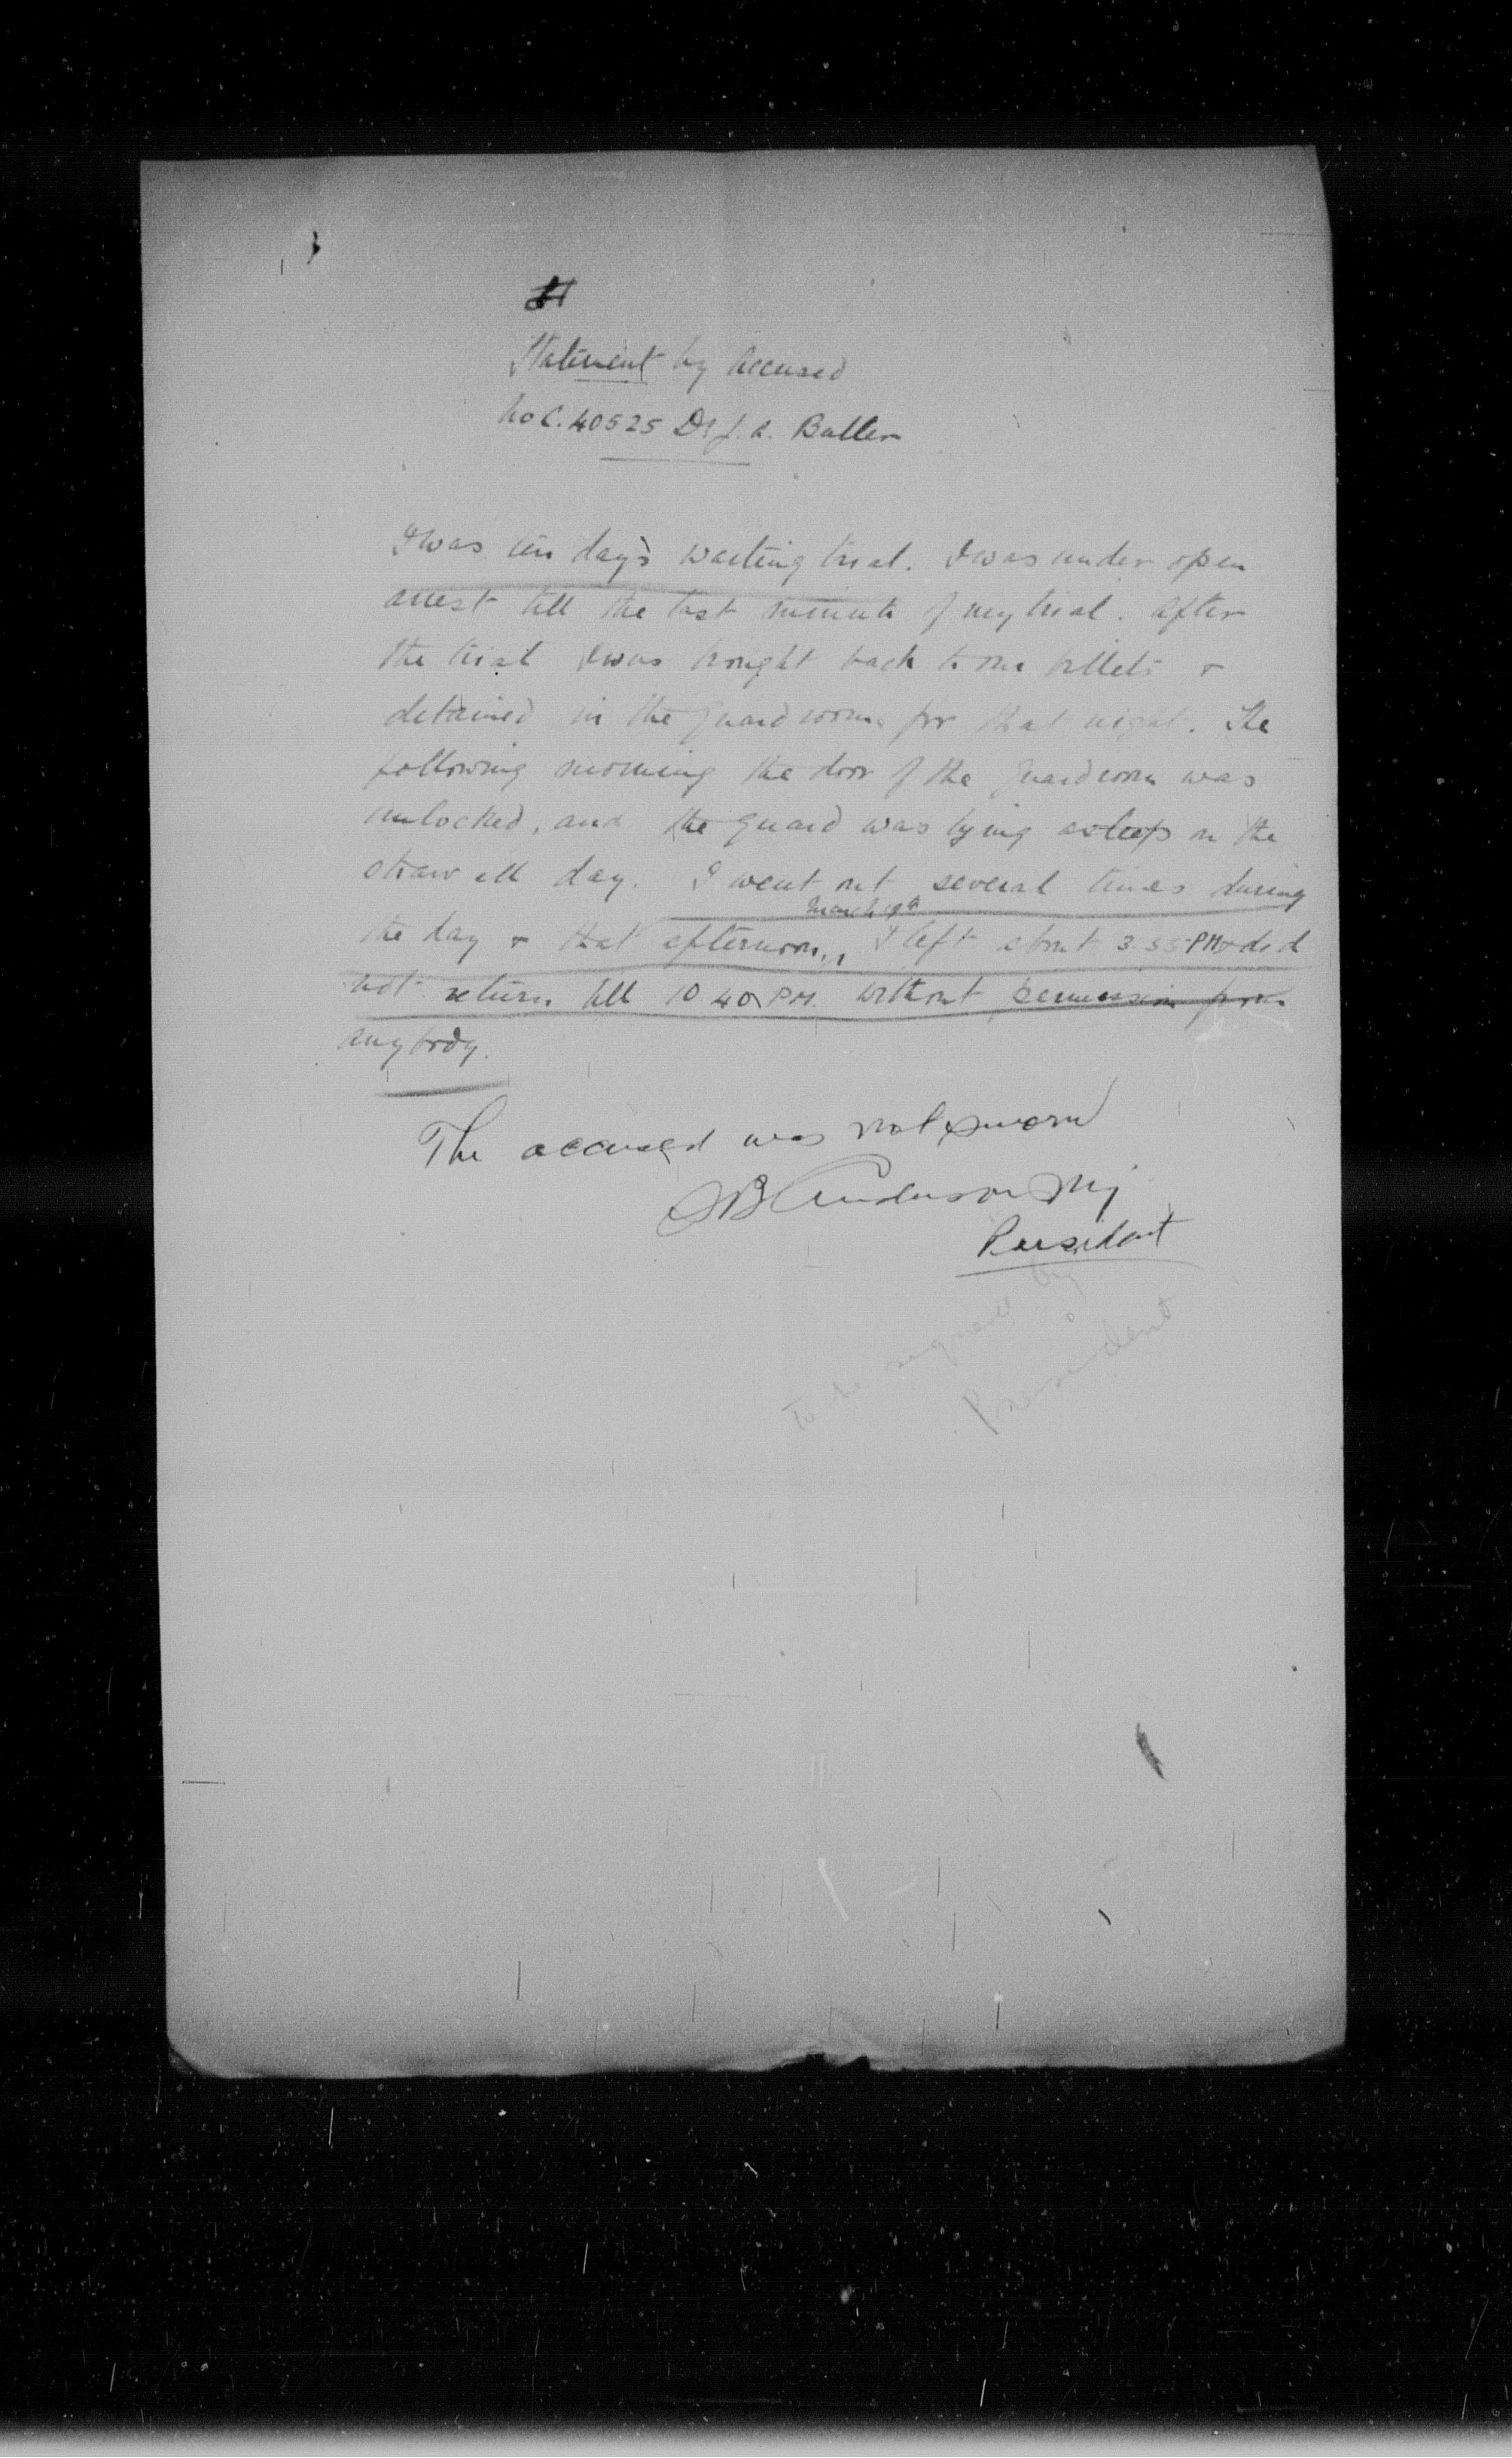 Statement by Accused
No C. 40525 Dr J. A. Butler
I was ten day's waiting trial. I was under open
arrest till the last minute of my trial. After
the trial I was brought back to our billets &
detained in the guard room for that night. The
following morning the door of the guardroom was
unlocked, and the guard was lying asleep on the
straw all day. I went out several times during
March 19th
the day & that afternoon,, I left about 3.55 PM & did
not return till 10.40 PM. without permission from
anybody.
The accused was not sworn
Anderson Maj
President
To be signed by
President